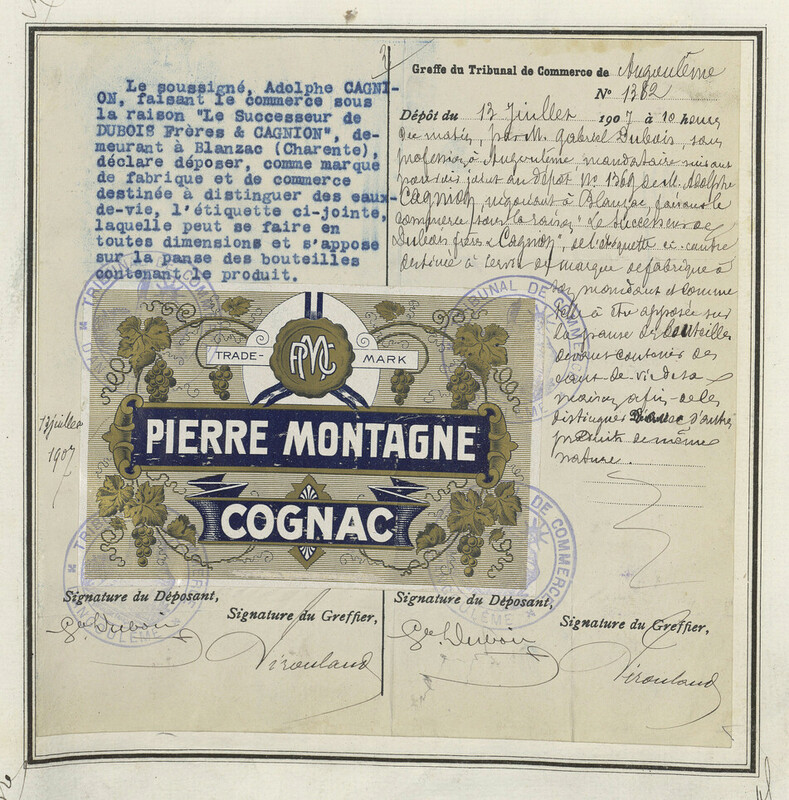 Le soussigné, Adolphe CAGNI-
ON, faisant le commerce sous
la raison "Le Successeur de
DUBOIS Frères & CAGNION", de-
meurant à Blanzac (Charente),
déclare déposer, comme marque
de fabrique et de commerce
destinée à distinguer des eaux-
de-vie, l'étiquette ci-jointe,
laquelle peut se faire en
toutes dimensions et s'appose
sur la panse des bouteilles
contenant le produit.
Greffe du Tribunal de Commerce de Angoulême
N° 1382
Dépôt du 13 Juillet 1907 à 10 heures
du matin, par M. Gabriel Dubois, sans
profession à Angoulême, mandataire suivant
pouvoir joint au dépôt N° 1369 de M. Adolphe
Cagnion, négociant à Blanzac, faisant le
commerce sous la raison "Le Successeur de
Dubois frères & Cagnion", de l'étiquette ci-contre
destinée à servir de marque de fabrique à
son mandant et comme
telle à être apposée sur
la panse de bouteilles
devant contenir des
eaux-de-vie de sa
maison afin de les
distinguer d'autres
produits de même
nature.
TRIBUNAL DE COMMERCE
ANGOULÊME
TRADE-MARK
PMC
PIERRE MONTAGNE
COGNAC
13 juillet
1907
Signature du Déposant,
Signature du Greffier,
Gel Dubois
Virouland
Signature du Déposant,
Signature du Greffier,
Gel Dubois
Virouland